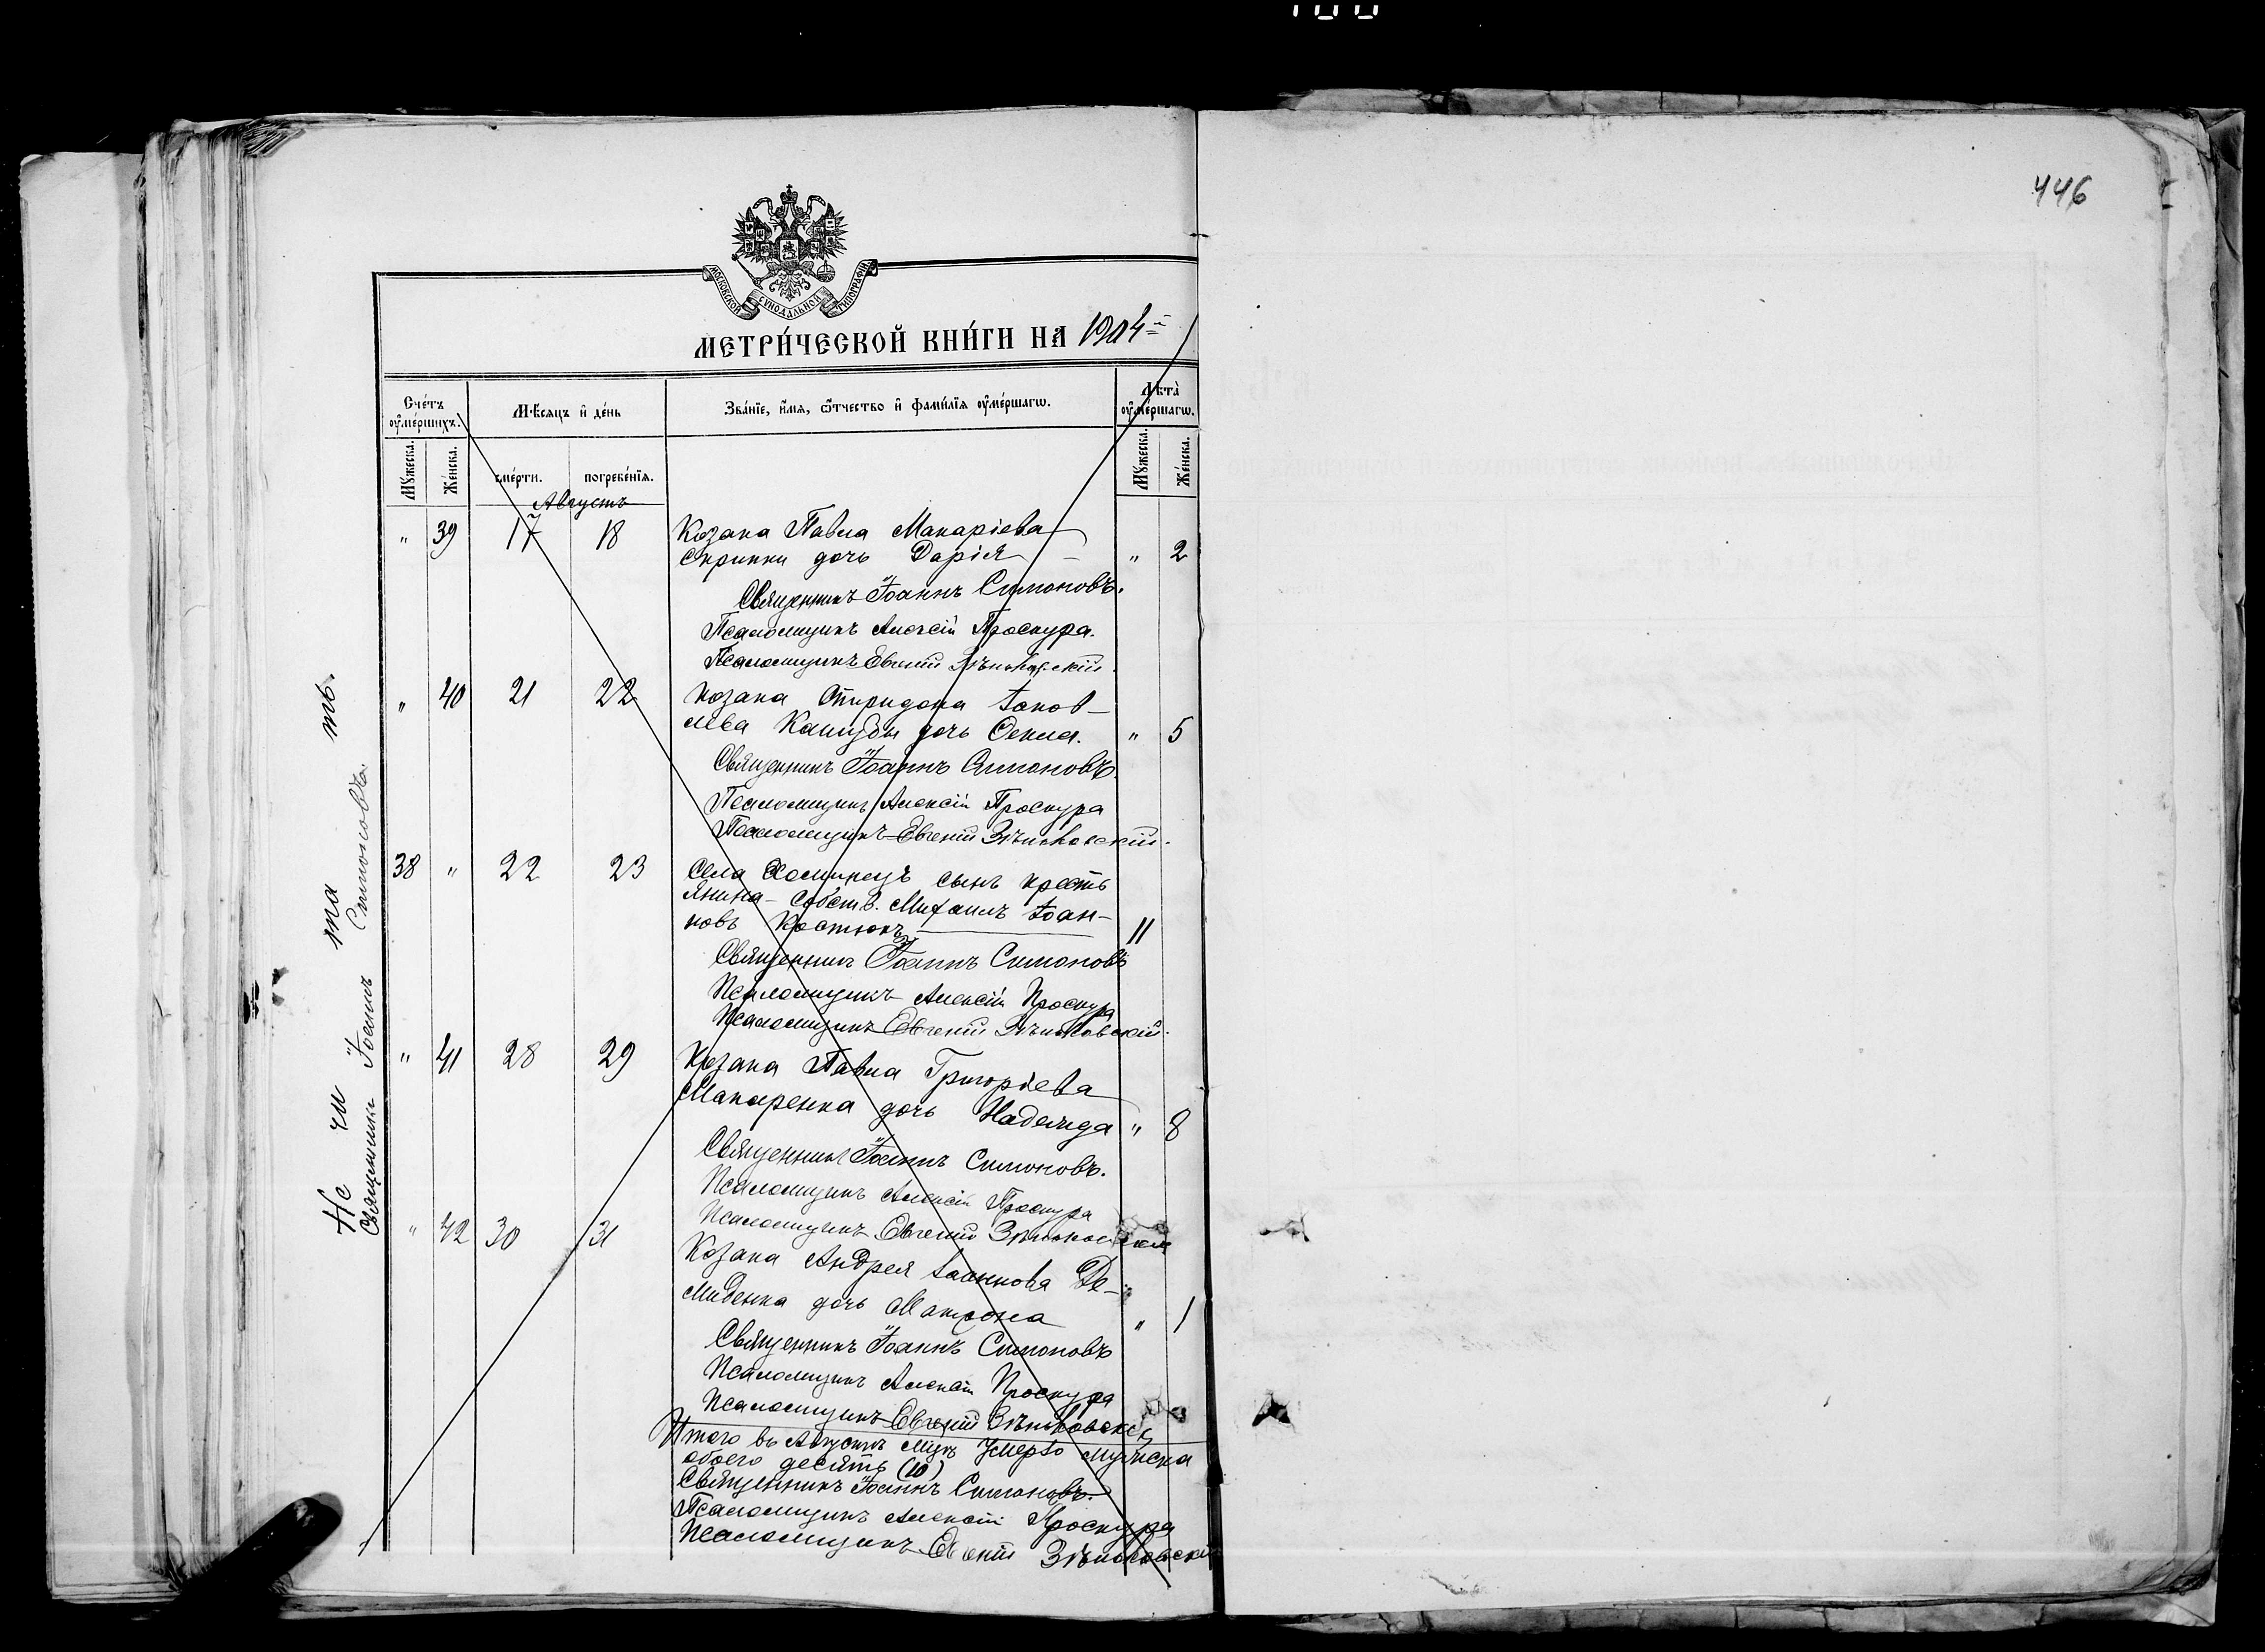 446
МОСКОВСКОЙ СѴНОДАЛЬНОЙ ТИПОГРАФІИ
МЕТРИ́ЧЕСКОЙ КНИ́ГИ НА 1904
Сче́тъ ᲂу҆ме́ршихъ.
Мѣ́сяцъ и҆ де́нь
Зва́нїе, и҆́мѧ, ѻ҆́тчество и҆ фами́лїѧ ᲂу҆ме́ршагѡ.
Лѣта̀ ᲂу҆ме́ршагѡ.
Мꙋ́жеска.
Же́нска.
сме́рти.
погребе́нїѧ.
Мꙋ́жеска.
Же́нска.
Августъ
" 39 17 18 Козака Павла Макаріева
Скрипки дочь Дарія " 2
Священникъ Іоаннъ Симоновъ.
Псаломщикъ Алексій Проскура.
Псаломщикъ Евгеній Зѣньковскій.
" 40 21 22 Козака Спиридона Іаков-
лева Кашубы дочь Ѳекла. " 5
Священникъ Іоаннъ Симоновъ.
Псаломщикъ Алексій Проскура
Псаломщикъ Евгеній Зѣньковскій.
38 " 22 23 Села сынъ кресть
янина-собств. Михаилъ Іоан-
новъ Костюкъ 11
Священникъ Іоаннъ Симоновъ
Псаломщикъ Алексій Проскура
Псаломщикъ Евгеній Зѣньковскій.
" 41 28 29 Козака Павла Григоріева
Макаренка дочь Надежда " 8
Священникъ Іоаннъ Симоновъ.
Псаломщикъ Алексій Проскура
Псаломщикъ Евгеній Зѣньковскій
" 42 30 31 Козака Андрея Іоаннова Де-
миденка дочь Матрона " 1
Священникъ Іоаннъ Симоновъ
Псаломщикъ Алексій Проскура
Псаломщикъ Евгеній Зѣньковскій
Итого въ Августѣ Мцѣ умерло мужеска
обоего десять (10)
Священникъ Іоаннъ Симоновъ.
Псаломщикъ Алексій Проскура
Псаломщикъ Евгеній Зѣньковскій
Не чи та ть.
Священникъ Іоаннъ Симоновъ.